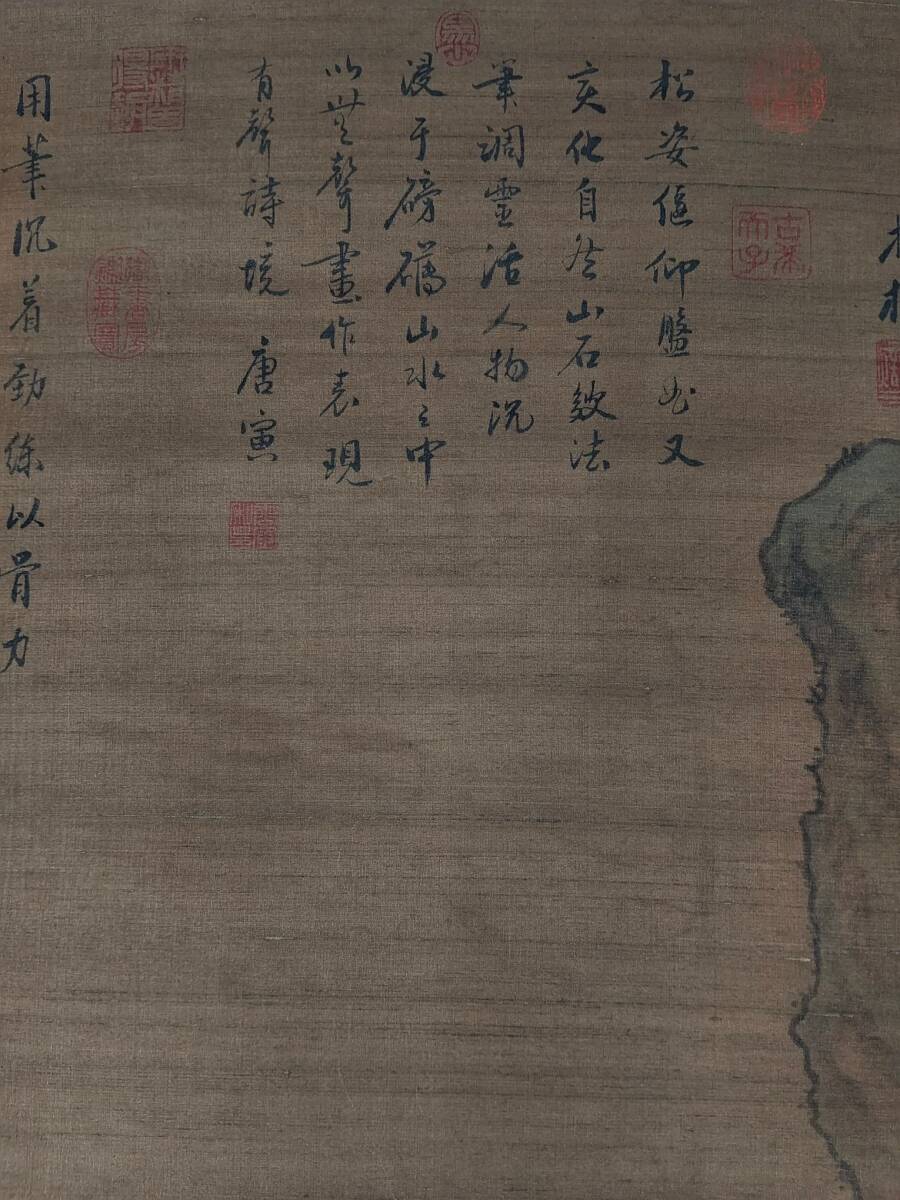 松姿偃仰盤如又
亥化自然山石效法
筆調靈活人物沉
浸于磅礴山水之中
以無聲畫作表現
有聲詩境 唐寅
用筆沉着勁练以骨力